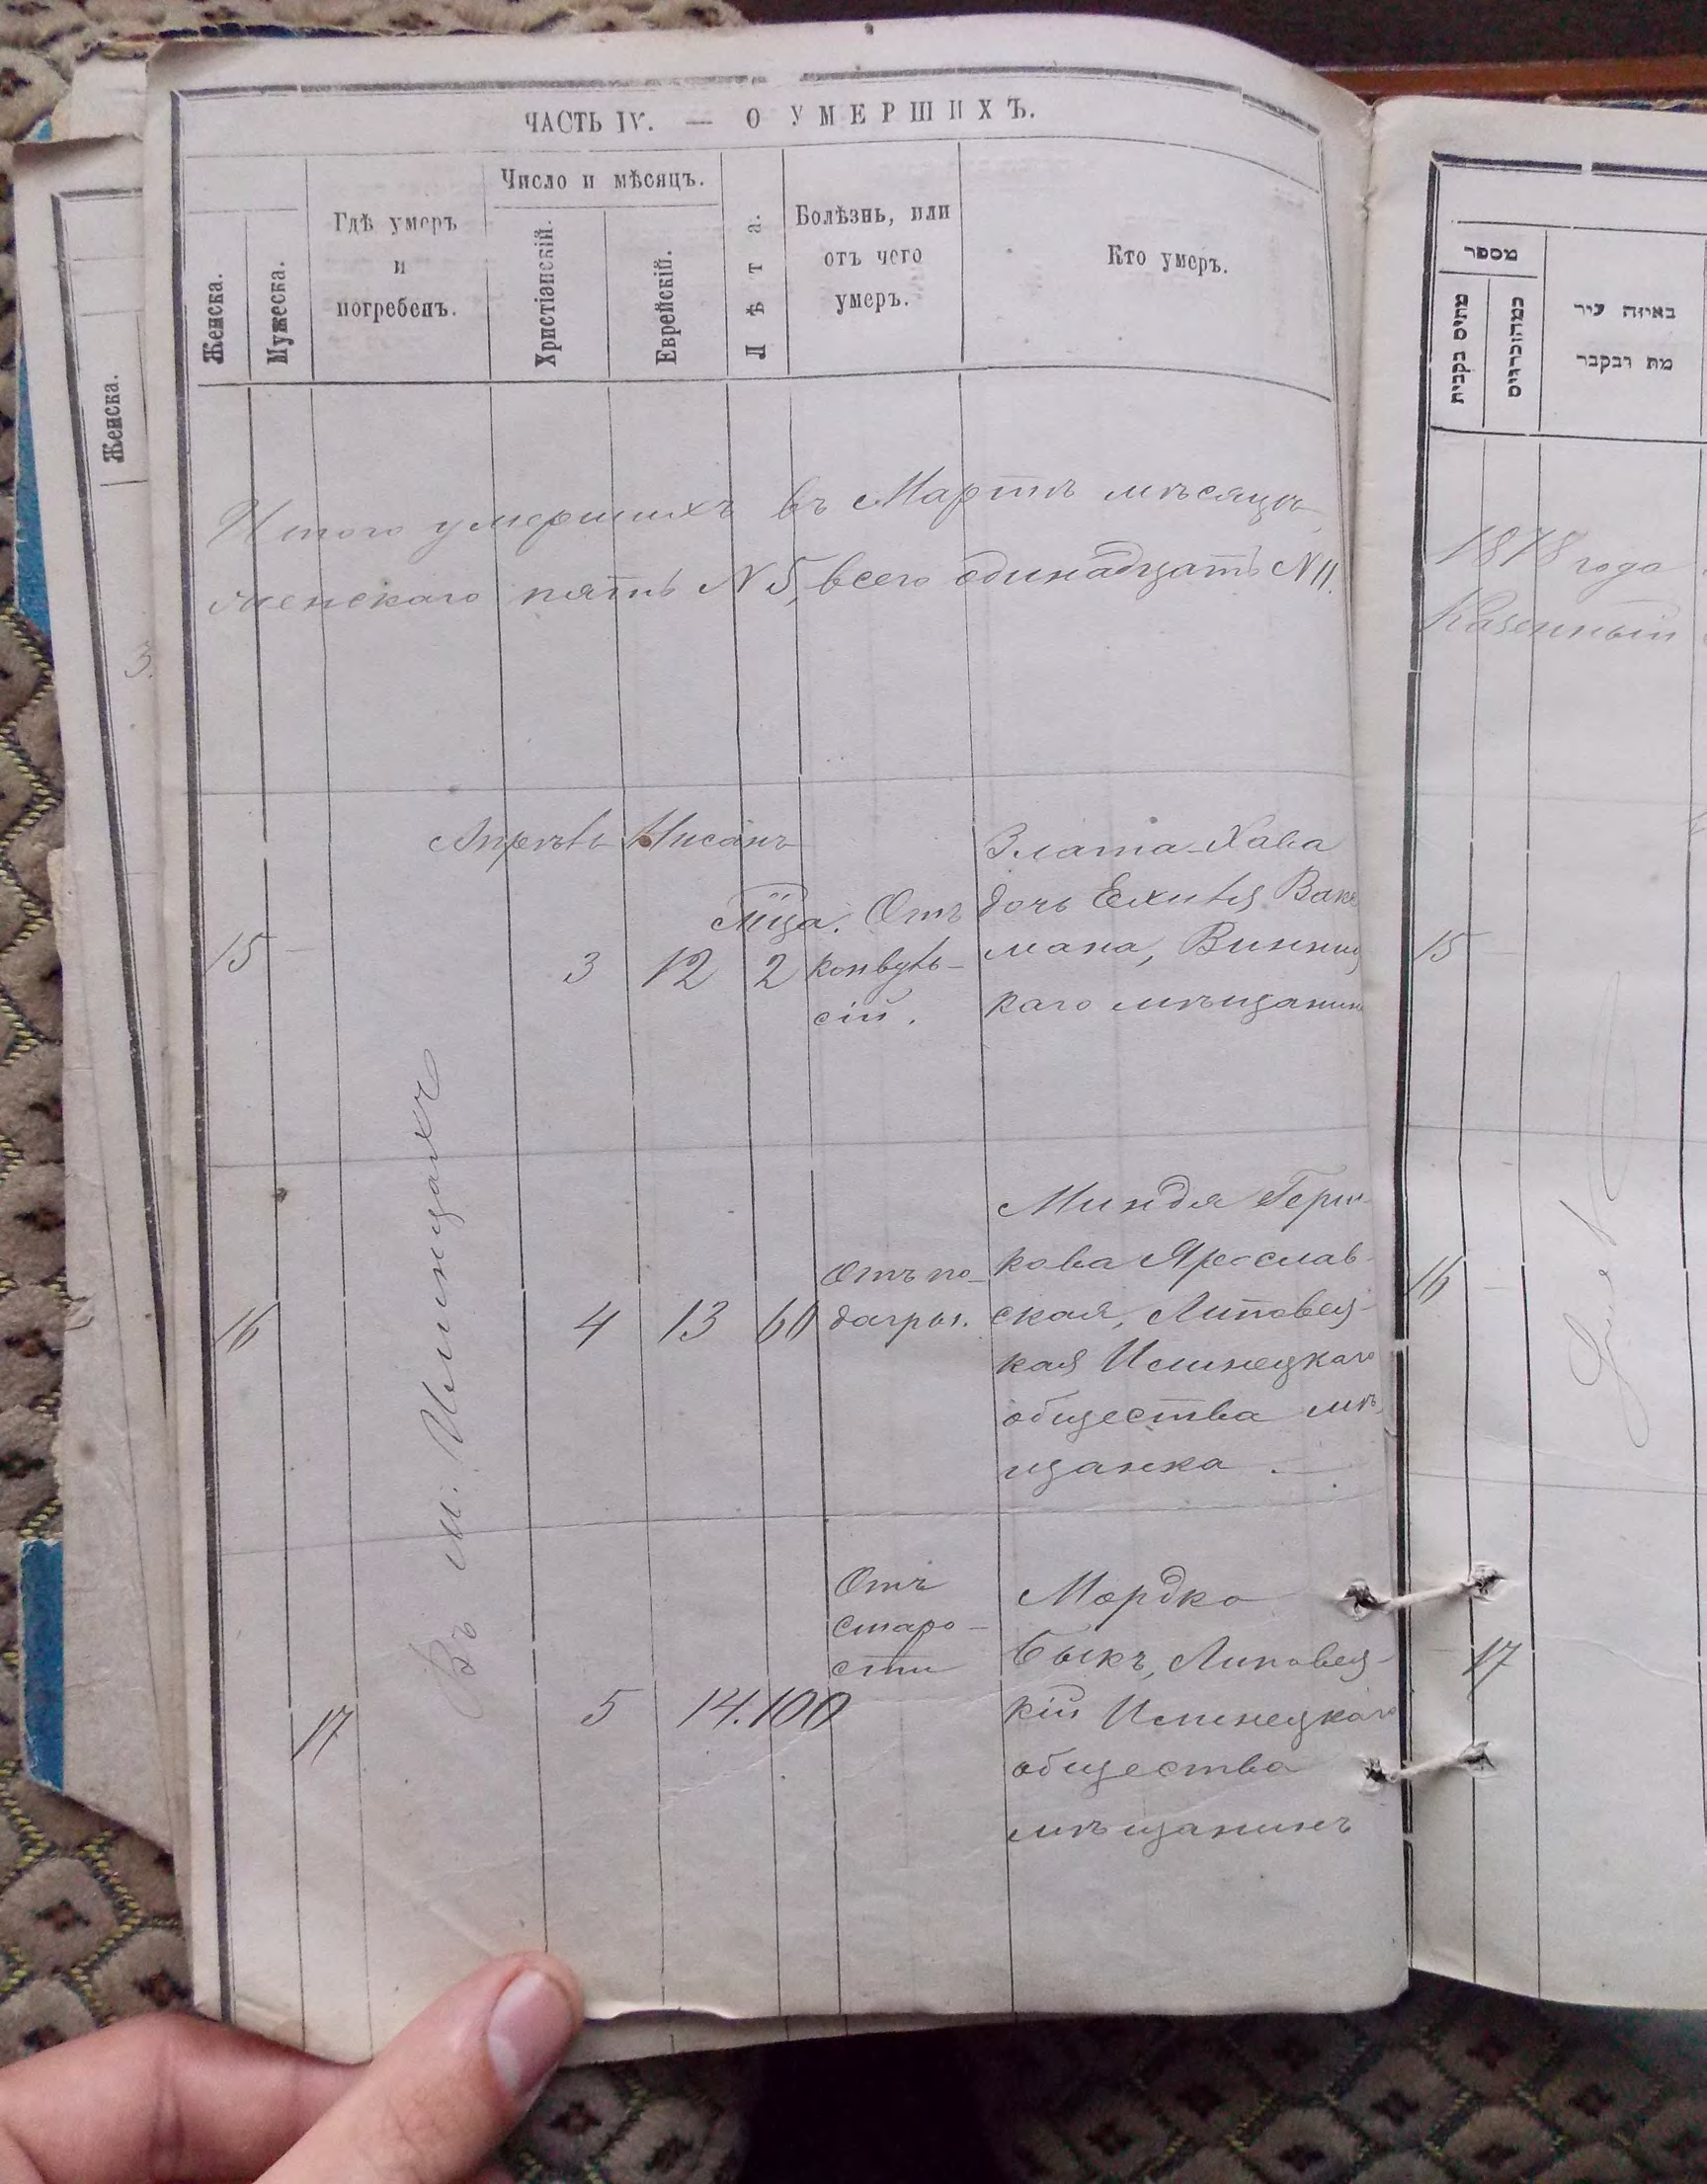 ЧАСТЬ IV. — О УМЕРШИХЪ.
Женска.
Мужеска.
Гдѣ умеръ
и
погребенъ.
Число и мѣсяцъ.
Христіанскій.
Еврейскій.
Лѣта.
Болѣзнь, или
отъ чего
умеръ.
Кто умеръ.
Итого умершихъ въ Мартѣ мѣсяцѣ,
женскаго пять N 5, всего одинадцать N 11.
Апрѣль Нисанъ
15
3
12
Мѣца.
2
Отъ
конвуль-
сій.
Злата-Хава
дочь Ехиля Вакс
мана, Винниц
каго мѣщанин
Въ м. Ильинцахъ
16
4
13
60
Отъ по-
дагры.
Миндя Герш-
кова Ярослав-
ская, Липовец-
кая Илинецкаго
общества мѣ
щанка.
17
5
14.
100
Отъ
старо-
сти
Мордко
Быкъ, Липовец-
кій Илинецкаго
общества
мѣщанинъ
Женска.
3.
מספר
באיזה עיר
מת ונקבר
1878 года
Казенный
15
16
17